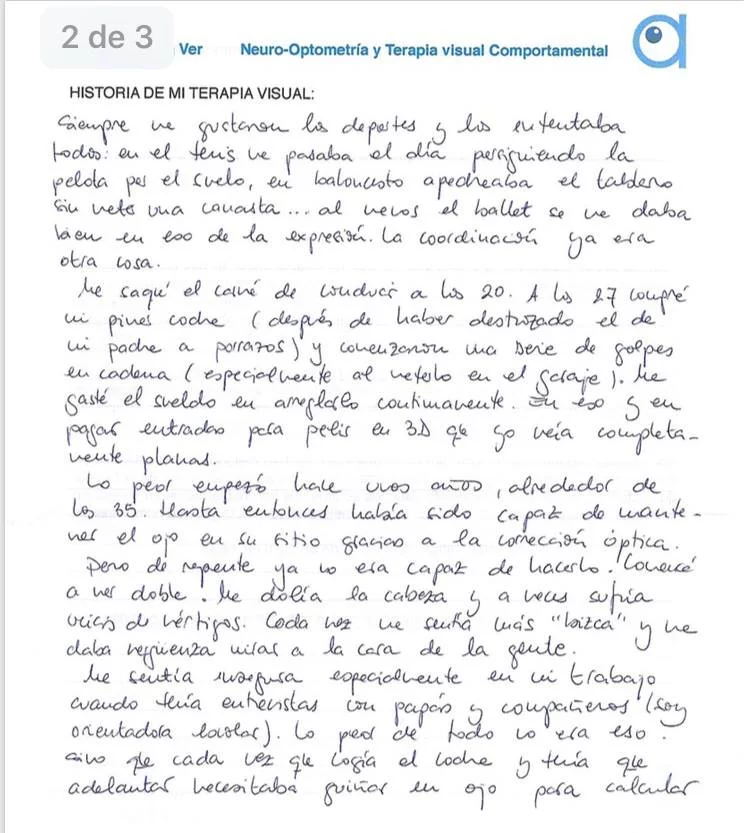 2 de 3
Ver
Neuro-Optometría y Terapia visual Comportamental
HISTORIA DE MI TERAPIA VISUAL:
Siempre me gustaron los deportes y los intentaba
todos: en el tenis me pasaba el día persiguiendo la
pelota por el suelo, en baloncesto apedreaba el tablero
sin meter una canasta... al menos el ballet se me daba
bien en eso de la expresión. La coordinación ya era
otra cosa.
Me saqué el carné de conducir a los 20. A los 27 compré
mi primer coche (después de haber destrozado el de
mi padre a porrazos) y comenzaron una serie de golpes
en cadena (especialmente al meterlo en el garaje). Me
gasté el sueldo en arreglarlo continuamente. En eso y en
pagar entradas para pelis en 3D que yo veía completa-
mente planas.
Lo peor empezó hace unos años, alrededor de
los 35. Hasta entonces había sido capaz de mante-
ner el ojo en su sitio gracias a la corrección óptica.
Pero de repente ya no era capaz de hacerlo. Comencé
a ver doble. Me dolía la cabeza y a veces sufría
de vértigos. Cada vez me sentía más "bizca" y me
daba vergüenza mirar a la cara de la gente.
Me sentía insegura especialmente en mi trabajo
cuando tenía entrevistas con papás y compañeros (soy
orientadora escolar). Lo peor de todo no era eso.
sino que cada vez que cogía el coche y tenía que
adelantar necesitaba guiñar un ojo para calcular